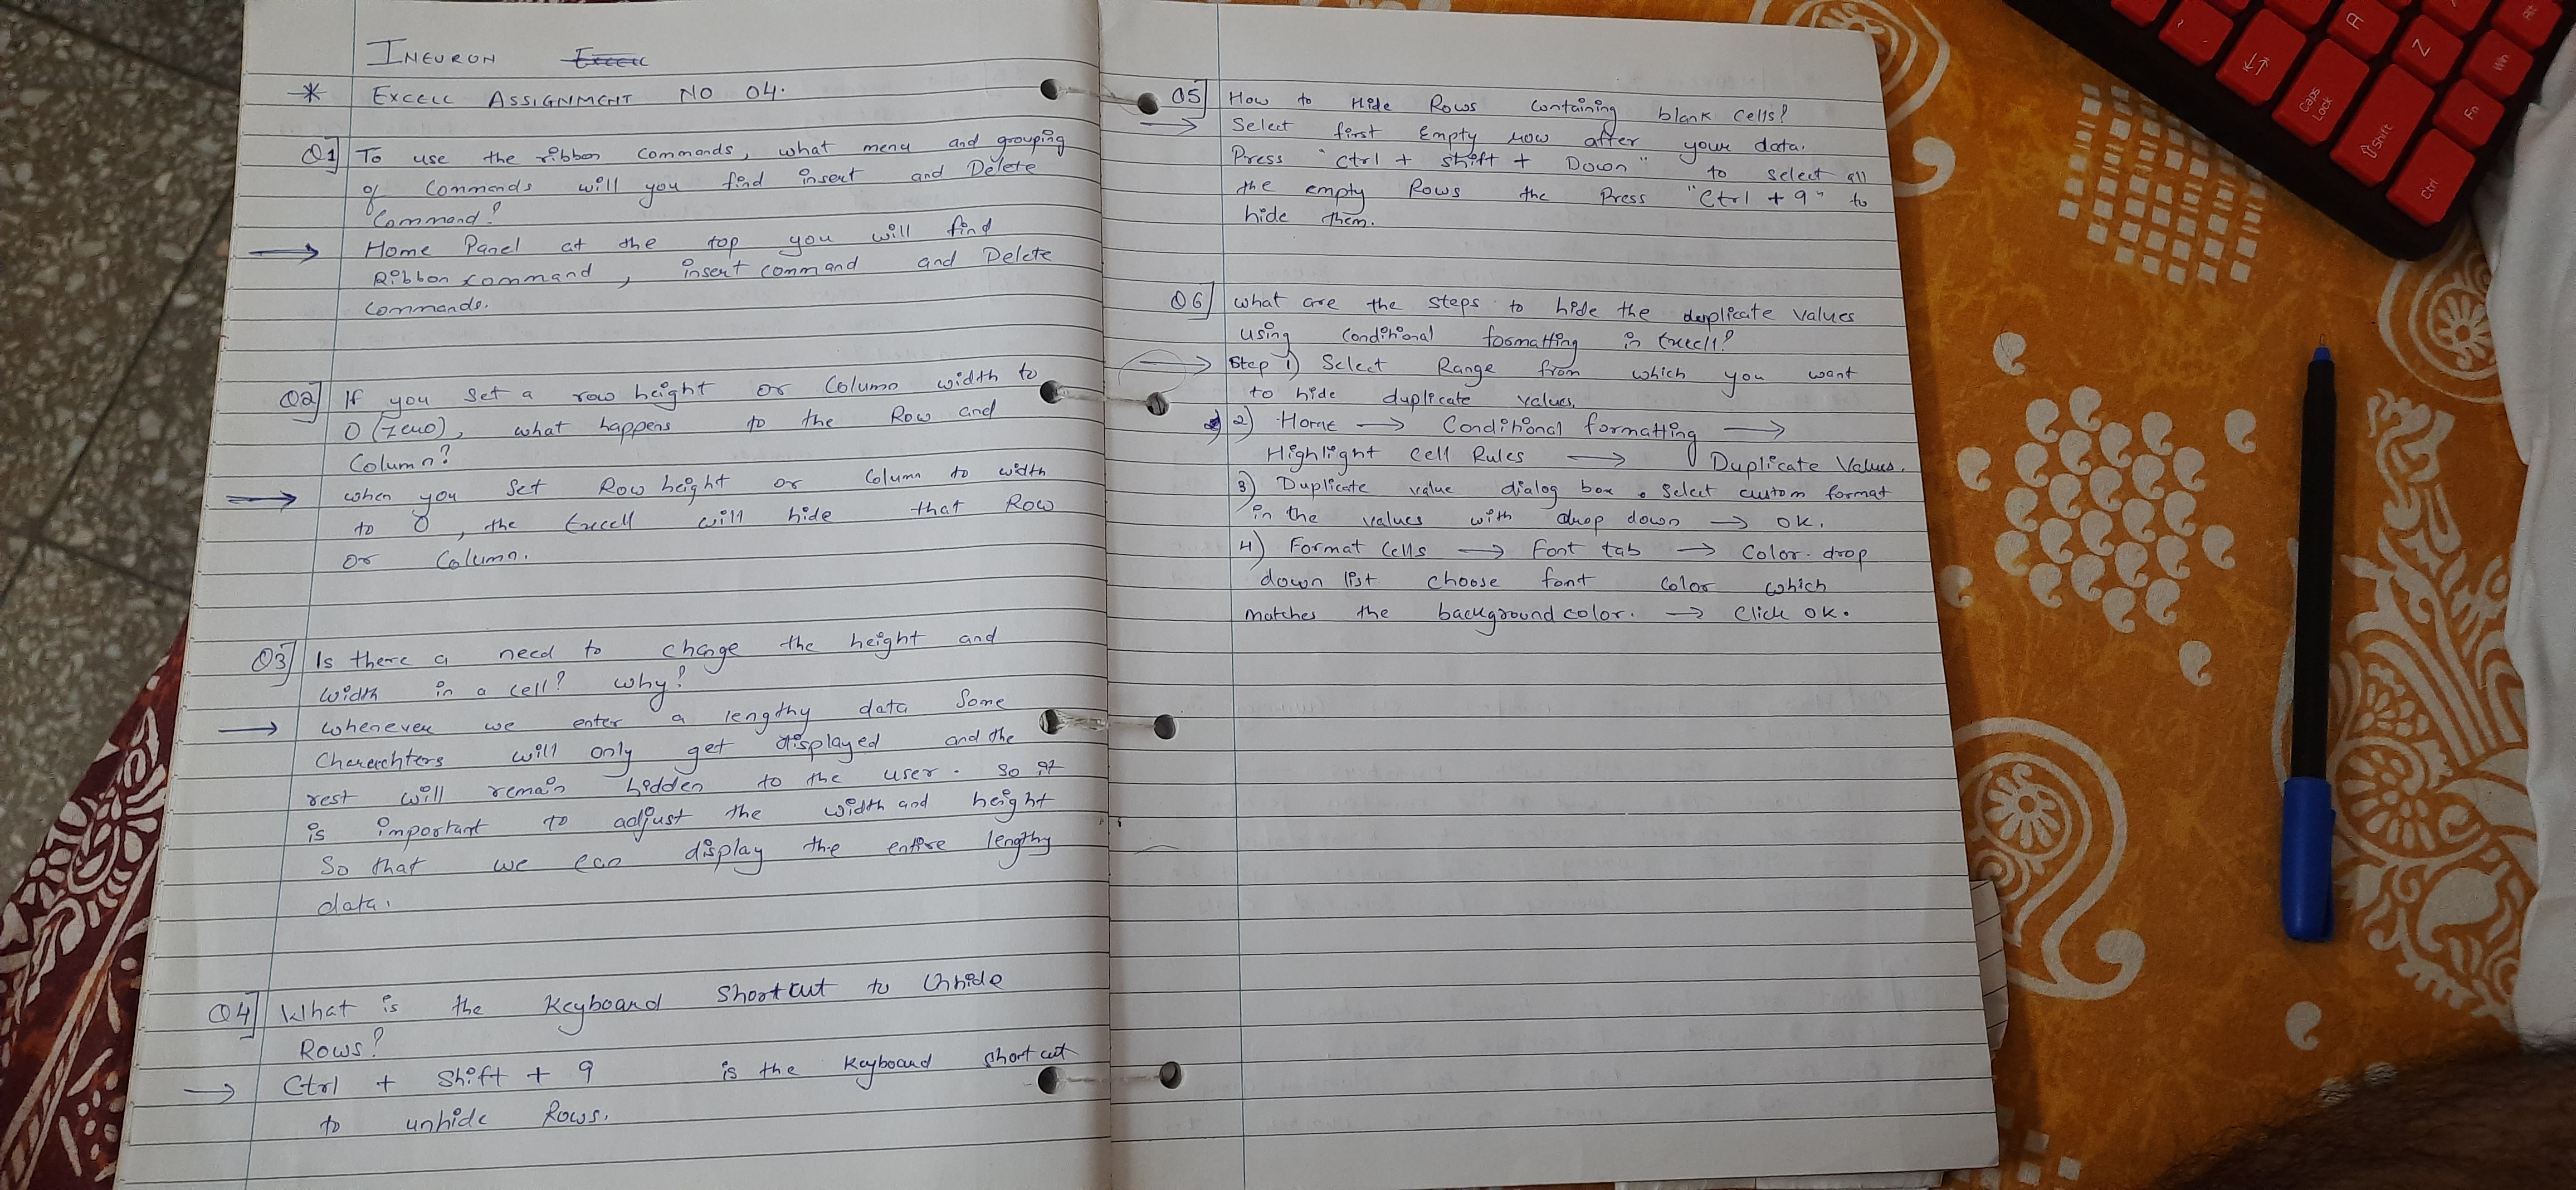 INEURON
* EXCELL ASSIGNMENT NO 04.
Q1] To use the ribbon commands, what menu and grouping
of commands will you find insert and Delete
Command?
→ Home Panel at the top you will find
Ribbon command, insert command and Delete
commands.
Q2] If you set a row height or column width to
0 (zero), what happens to the Row and
Column?
→ when you set Row height or column to width
to 0, the Excell will hide that Row
or Column.
Q3] Is there a need to change the height and
width in a cell? why?
→ whenever we enter a lengthy data Some
Charachters will only get displayed and the
rest will remain hidden to the user. So it
is important to adjust the width and height
So that we can display the entire lengthy
data.
Q4] What is the Keyboard Shortcut to Unhide
Rows?
→ Ctrl + Shift + 9 is the keyboard shortcut
to unhide Rows.
Q5] How to Hide Rows containing blank cells?
→ Select first Empty row after your data.
Press "Ctrl + shift + Down" to select all
the empty Rows the Press "Ctrl + 9" to
hide them.
Q6] what are the steps to hide the duplicate values
using conditional formatting in Excell?
→ Step 1) Select Range from which you want
to hide duplicate values.
2) Home → Conditional formatting →
Highlight Cell Rules → Duplicate Values.
3) Duplicate value dialog box. Select custom format
in the values with drop down → OK.
4) Format Cells → Font tab → Color. drop
down list choose font color which
matches the background color. → Click OK.
A
Z
Alt
Win
Fn
Caps
Lock
⇧Shift
Ctrl